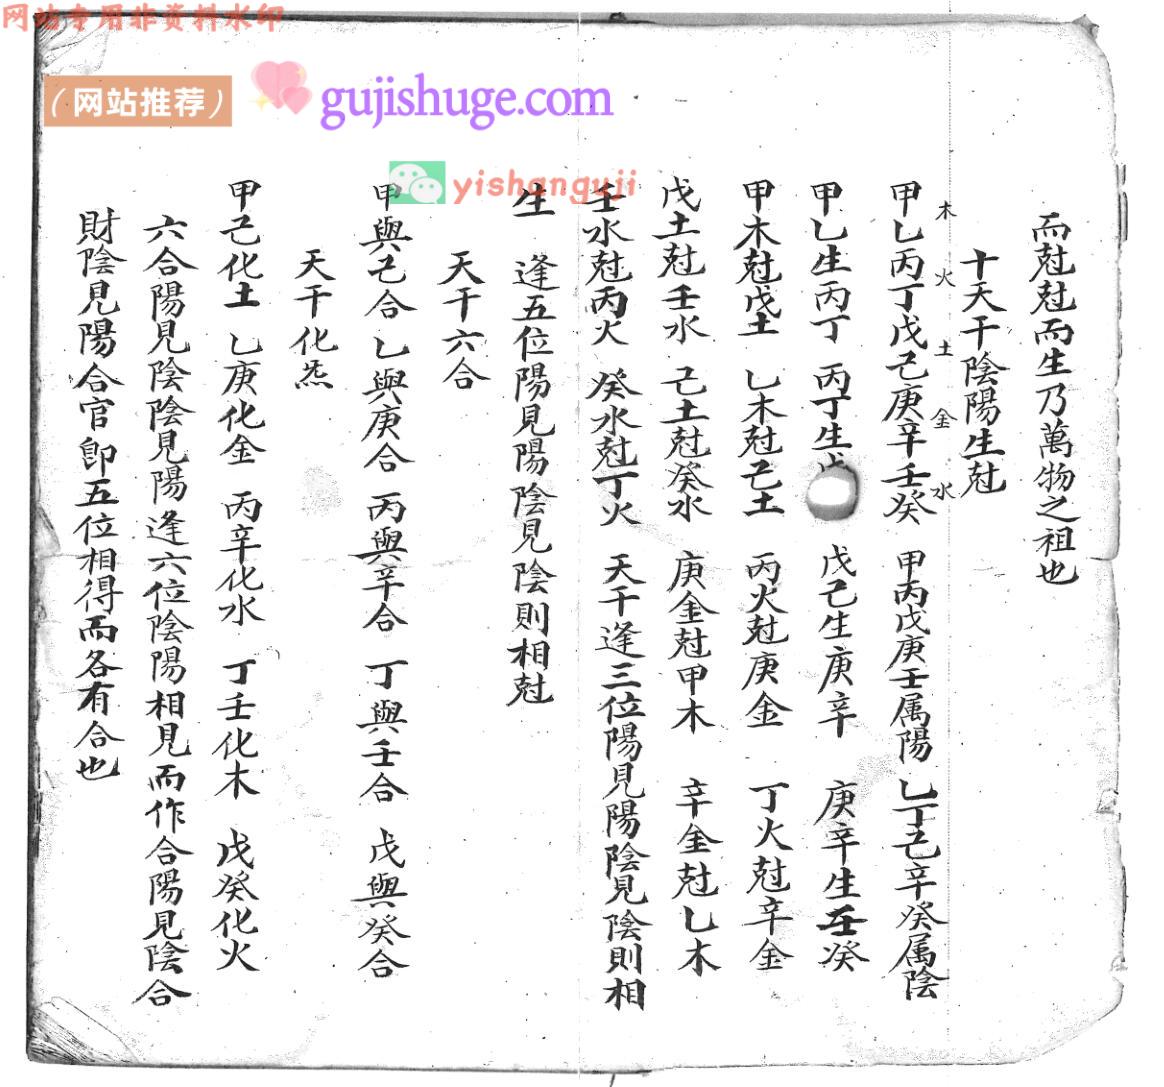 网站专用非资料水印
（网站推荐）
gujishuge.com
yishanguji
而尅尅而生乃萬物之祖也
十天干陰陽生尅
木 火 土 金 水
甲乙丙丁戊己庚辛壬癸 甲丙戊庚壬属陽 乙丁己辛癸属陰
甲乙生丙丁 丙丁生戊 戊己生庚辛 庚辛生壬癸
甲木尅戊土 乙木尅己土 丙火尅庚金 丁火尅辛金
戊土尅壬水 己土尅癸水 庚金尅甲木 辛金尅乙木
壬水尅丙火 癸水尅丁火 天干逢三位陽見陽陰見陰則相
生 逢五位陽見陽陰見陰則相尅
天干六合
甲與己合 乙與庚合 丙與辛合 丁與壬合 戊與癸合
天干化炁
甲己化土 乙庚化金 丙辛化水 丁壬化木 戊癸化火
六合陽見陰陰見陽逢六位陰陽相見而作合陽見陰合
財陰見陽合官卽五位相得而各有合也